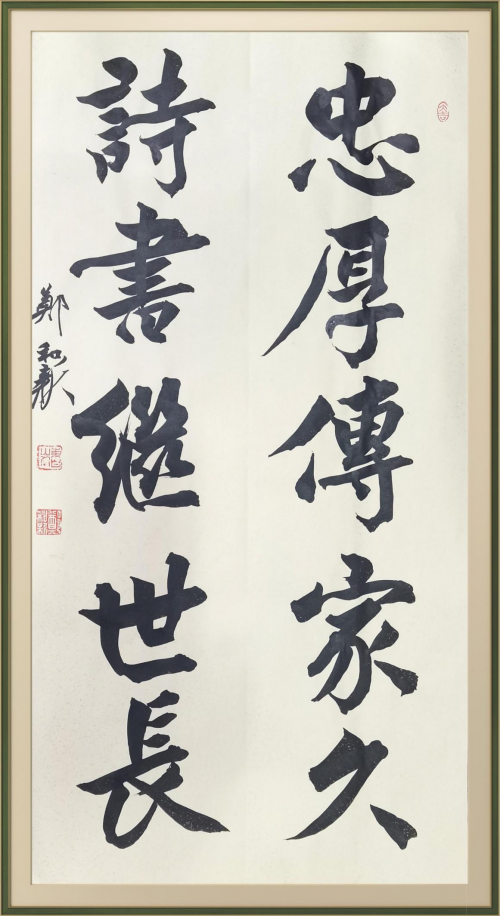 忠厚傳家久
詩書繼世長
鄭和歡